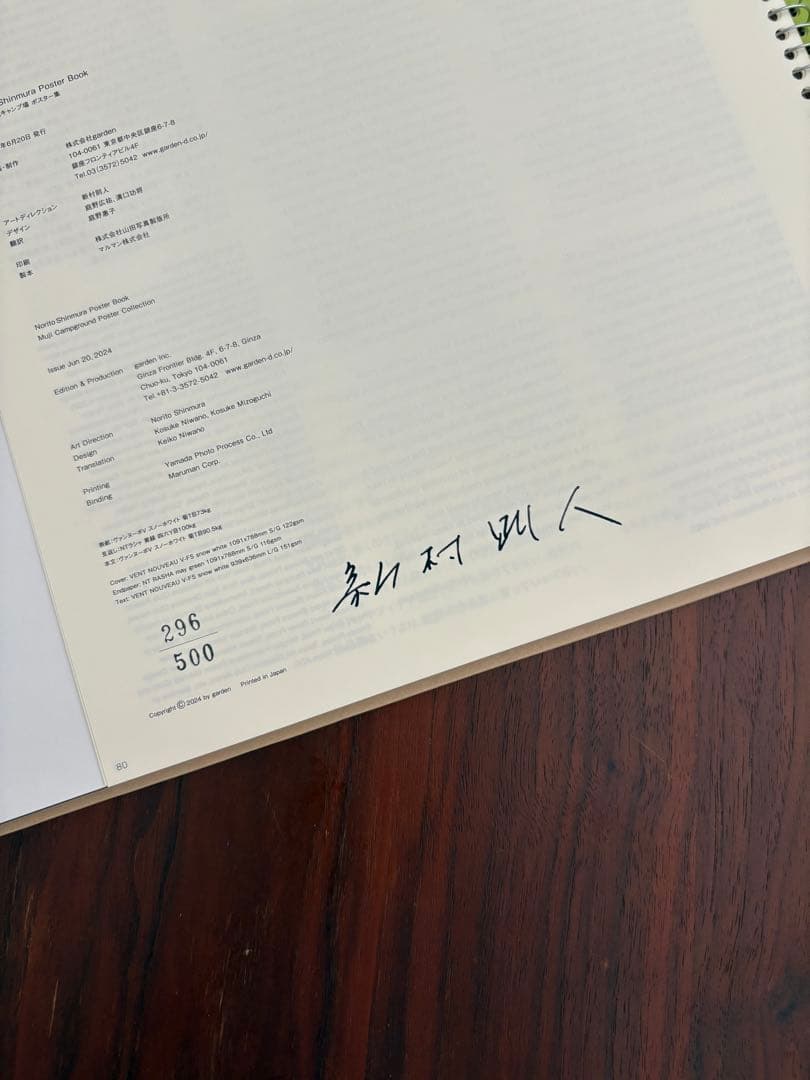 Shinmura Poster Book
キャンプ場 ポスター集
年6月20日 発行
・制作
株式会社garden
104-0061 東京都中央区銀座6-7-8
銀座フロンティアビル4F
Tel.03(3572)5042 www.garden-d.co.jp/
アートディレクション
新村則人
デザイン
庭野広祐、溝口功将
翻訳
庭野惠子
印刷
株式会社山田写真製版所
製本
マルマン株式会社
Norito Shinmura Poster Book
Muji Campground Poster Collection
Issue Jun 20, 2024
Edition & Production garden Inc.
Ginza Frontier Bldg. 4F, 6-7-8, Ginza
Chuo-ku, Tokyo 104-0061
Tel.+81-3-3572-5042 www.garden-d.co.jp/
Art Direction Norito Shinmura
Design Kosuke Niwano, Kosuke Mizoguchi
Translation Keiko Niwano
Printing Yamada Photo Process Co., Ltd
Binding Maruman Corp.
表紙:ヴァンヌーボV スノーホワイト 菊T目73kg
見返し:NTラシャ 黄緑 四六Y目100kg
本文:ヴァンヌーボV スノーホワイト 菊T目90.5kg
Cover: VENT NOUVEAU V-FS snow white 1091x788mm S/G 122gsm
Endpaper: NT RASHA may green 1091x788mm S/G 116gsm
Text: VENT NOUVEAU V-FS snow white 939x636mm L/G 151gsm
新村則人
296
500
Copyright © 2024 by garden Printed in Japan
80